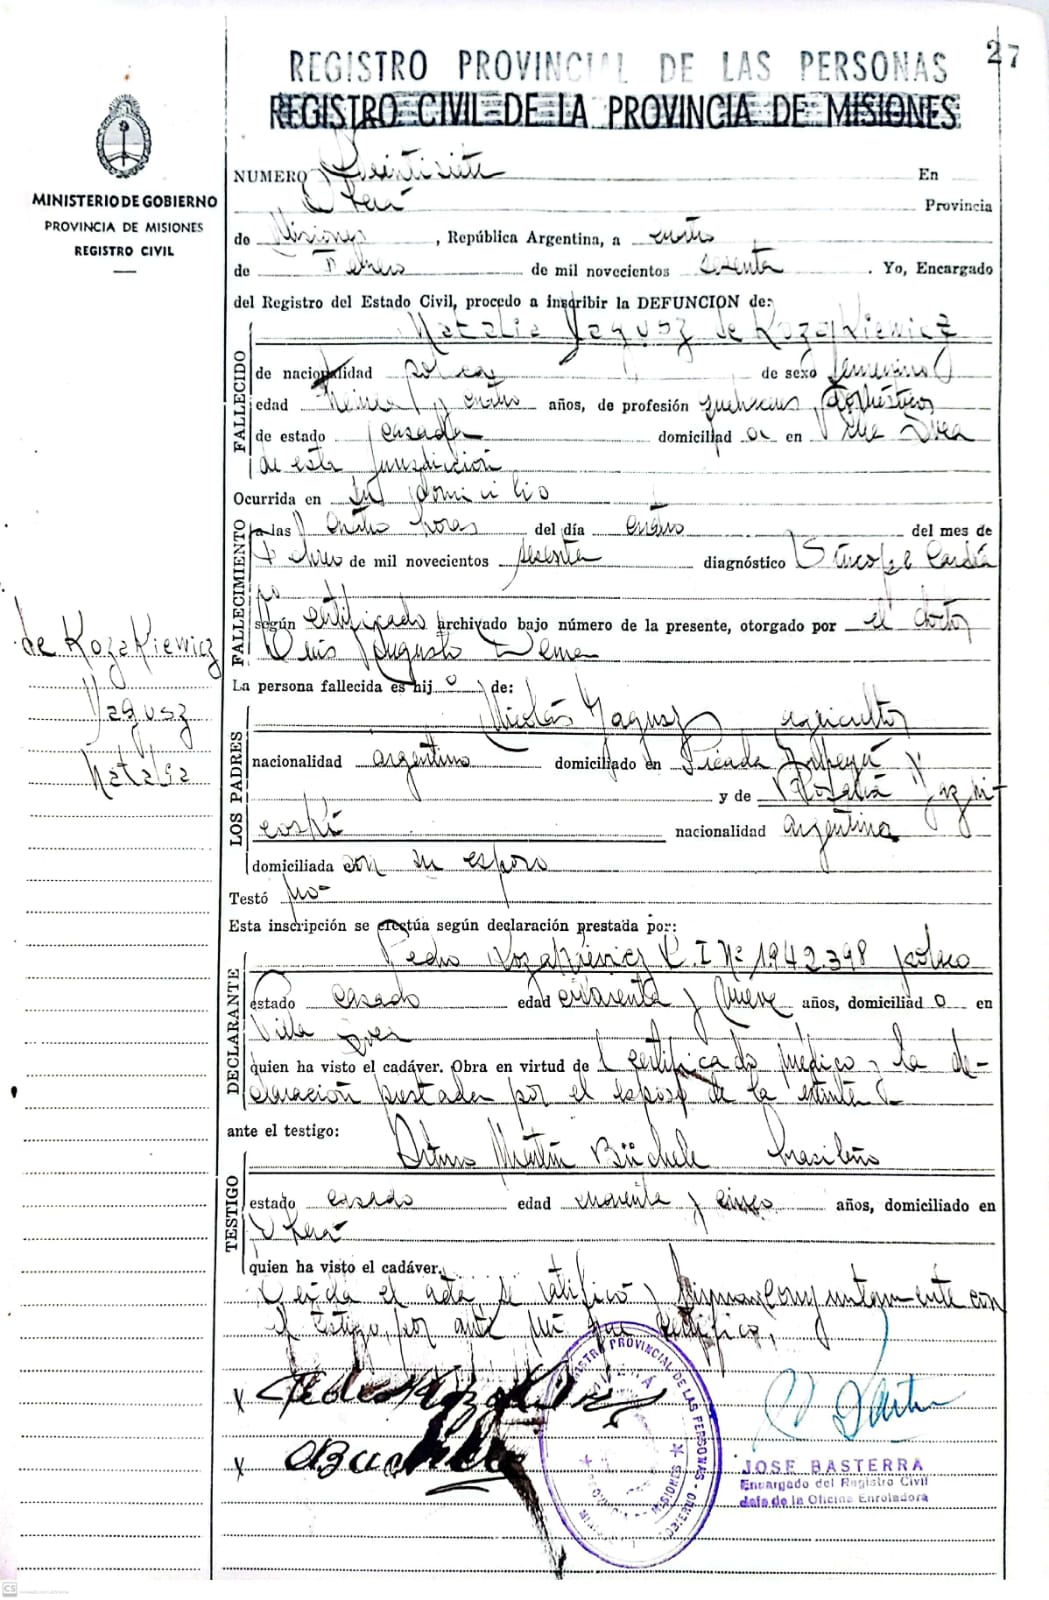 27
REGISTRO PROVINCIAL DE LAS PERSONAS
REGISTRO CIVIL DE LA PROVINCIA DE MISIONES
MINISTERIO DE GOBIERNO
PROVINCIA DE MISIONES
REGISTRO CIVIL
NUMERO Veintisiete En
Oberá Provincia
de Misiones, República Argentina, a cuatro
de Febrero de mil novecientos sesenta. Yo, Encargado
del Registro del Estado Civil, procedo a inscribir la DEFUNCION de:
Natalia Yagusz de Kozakiewicz
FALLECIDO
de nacionalidad polaca de sexo femenino
edad treinta y cuatro años, de profesión quehaceres domésticos
de estado casada domiciliad a en Villa Svea
de esta jurisdicción
Ocurrida en su domicilio
FALLECIMIENTO
a las cuatro horas del día cuatro del mes de
Febrero de mil novecientos sesenta diagnóstico Síncope Cardía
co
según certificado archivado bajo número de la presente, otorgado por el doctor
Luis Augusto Derna
de Kozakiewicz
Yagusz
Natalia
La persona fallecida es hij o de:
LOS PADRES
Nicolás Yagusz agricultor
nacionalidad argentino domiciliado en Picada
y de Rosalía
nacionalidad argentina
domiciliada con su esposo
Testó no-
Esta inscripción se efectúa según declaración prestada por:
DECLARANTE
Pedro Kozakiewicz C.I Nº 1942.398 polaco
estado casado edad cuarenta y nueve años, domiciliad o en
Villa Svea
quien ha visto el cadáver. Obra en virtud de certificado médico y la de-
claración prestada por el esposo de la extinta
ante el testigo:
TESTIGO
Arturo Martín Büchele brasileño
estado casado edad cuarenta y cinco años, domiciliado en
Oberá
quien ha visto el cadáver.
Leída el acta se ratificó y firman conjuntamente con
el testigo, por ante mí que certifico,
X Pedro Kozakiewicz
X A Buchele
REGISTRO PROVINCIAL DE LAS PERSONAS
OBERÁ
MISIONES
JOSE BASTERRA
Encargado del Registro Civil
Jefe de la Oficina Enroladora
CS